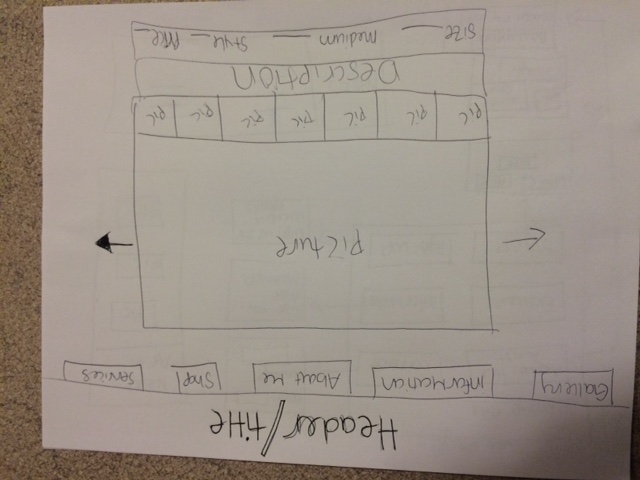 Header/title
Gallery Information About Me Shop Services
picture
pic pic pic pic pic pic pic
Description
Size____ medium ____ Style__ Price__